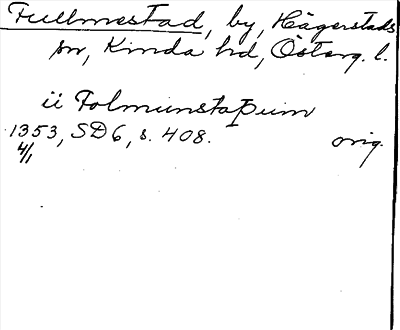 Fullmestad, by, Hägerstads
sn, Kinda hd, Österg. l.
ii Folmunstaþum
1353, SD 6, s. 408. orig.
4/1